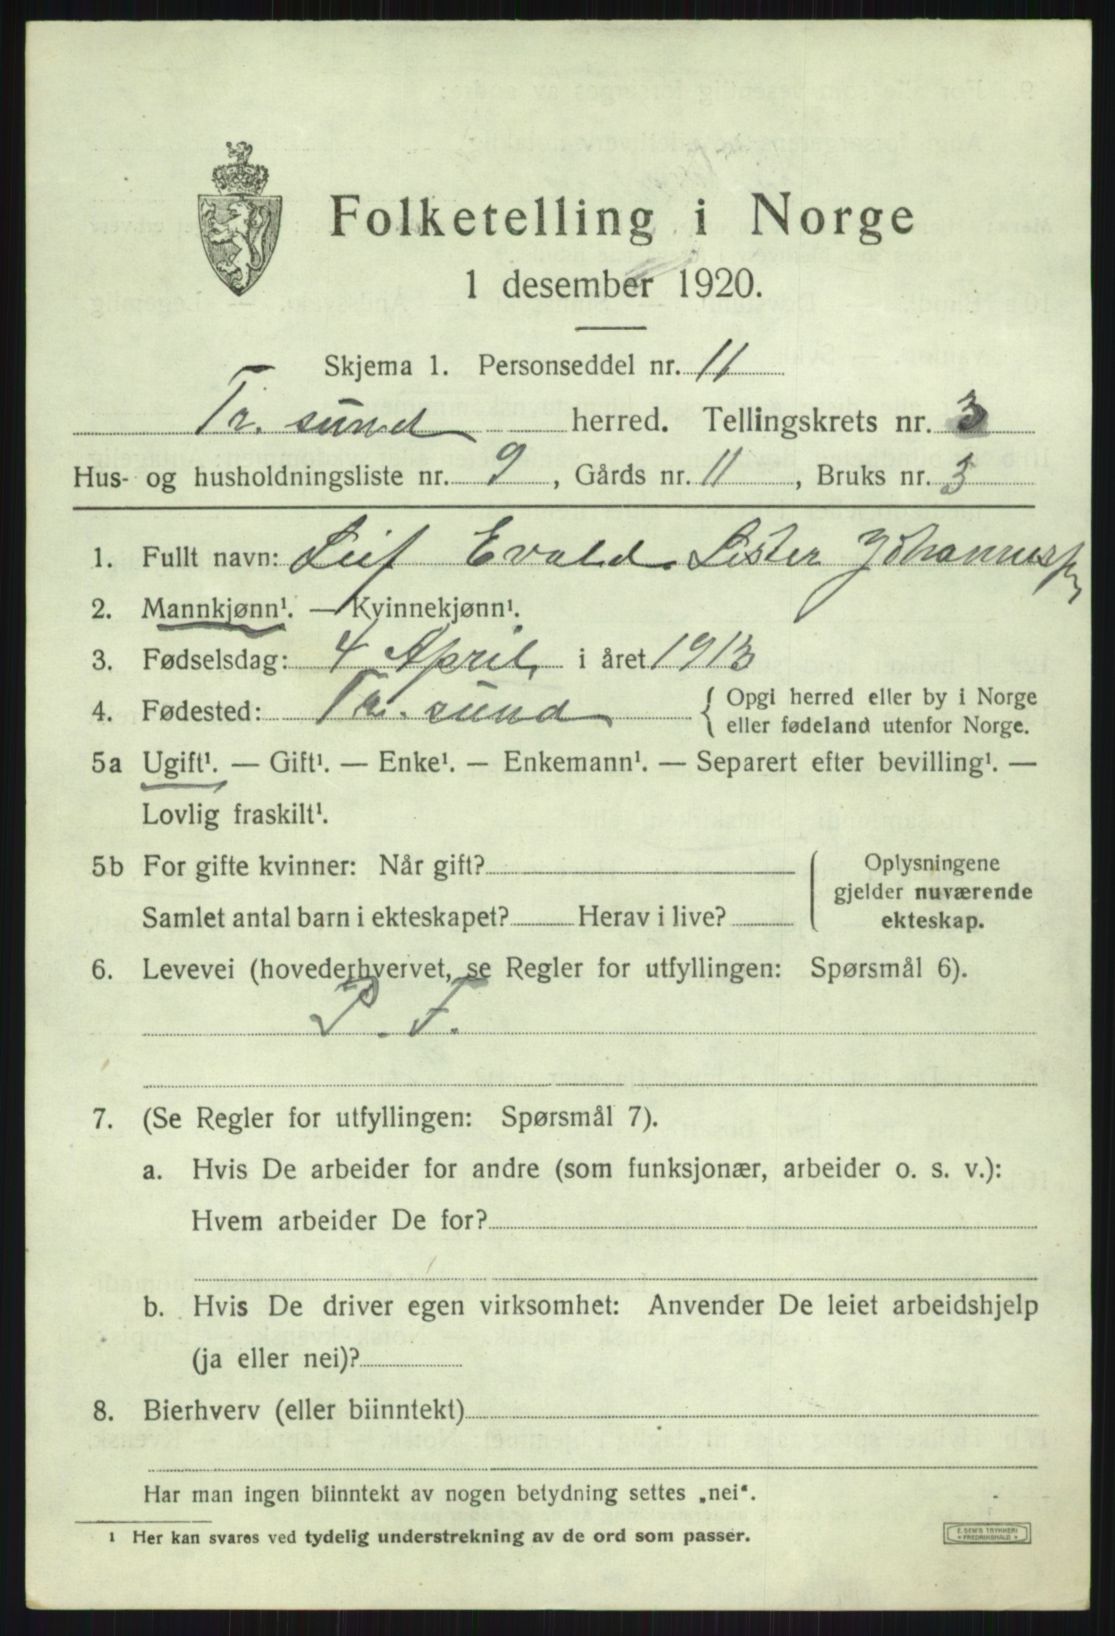 Folketelling i Norge
1 desember 1920.
Skjema 1. Personseddel nr. 11
Tr. sund herred. Tellingskrets nr. 3
Hus- og husholdningsliste nr. 9, Gårds nr. 11, Bruks nr. 3
1. Fullt navn: Leif Evald Lister
2. Mannkjønn¹. — Kvinnekjønn¹.
3. Fødselsdag: 4 April i året 1913
4. Fødested: Tr. sund { Opgi herred eller by i Norge
eller fødeland utenfor Norge.
5a Ugift¹. — Gift¹. — Enke¹. — Enkemann¹. — Separert efter bevilling¹. —
Lovlig fraskilt¹.
5b For gifte kvinner: Når gift?
Samlet antal barn i ekteskapet? Herav i live?
Oplysningene
gjelder nuværende
ekteskap.
6. Levevei (hovederhvervet, se Regler for utfyllingen: Spørsmål 6).
P. F.
7. (Se Regler for utfyllingen: Spørsmål 7).
a. Hvis De arbeider for andre (som funksjonær, arbeider o. s. v.):
Hvem arbeider De for?
b. Hvis De driver egen virksomhet: Anvender De leiet arbeidshjelp
(ja eller nei)?
8. Bierhverv (eller biinntekt)
Har man ingen biinntekt av nogen betydning settes „nei“.
¹ Her kan svares ved tydelig understrekning av de ord som passer.
E. SEM'S TRYKKERI
FREDRIKSHALD